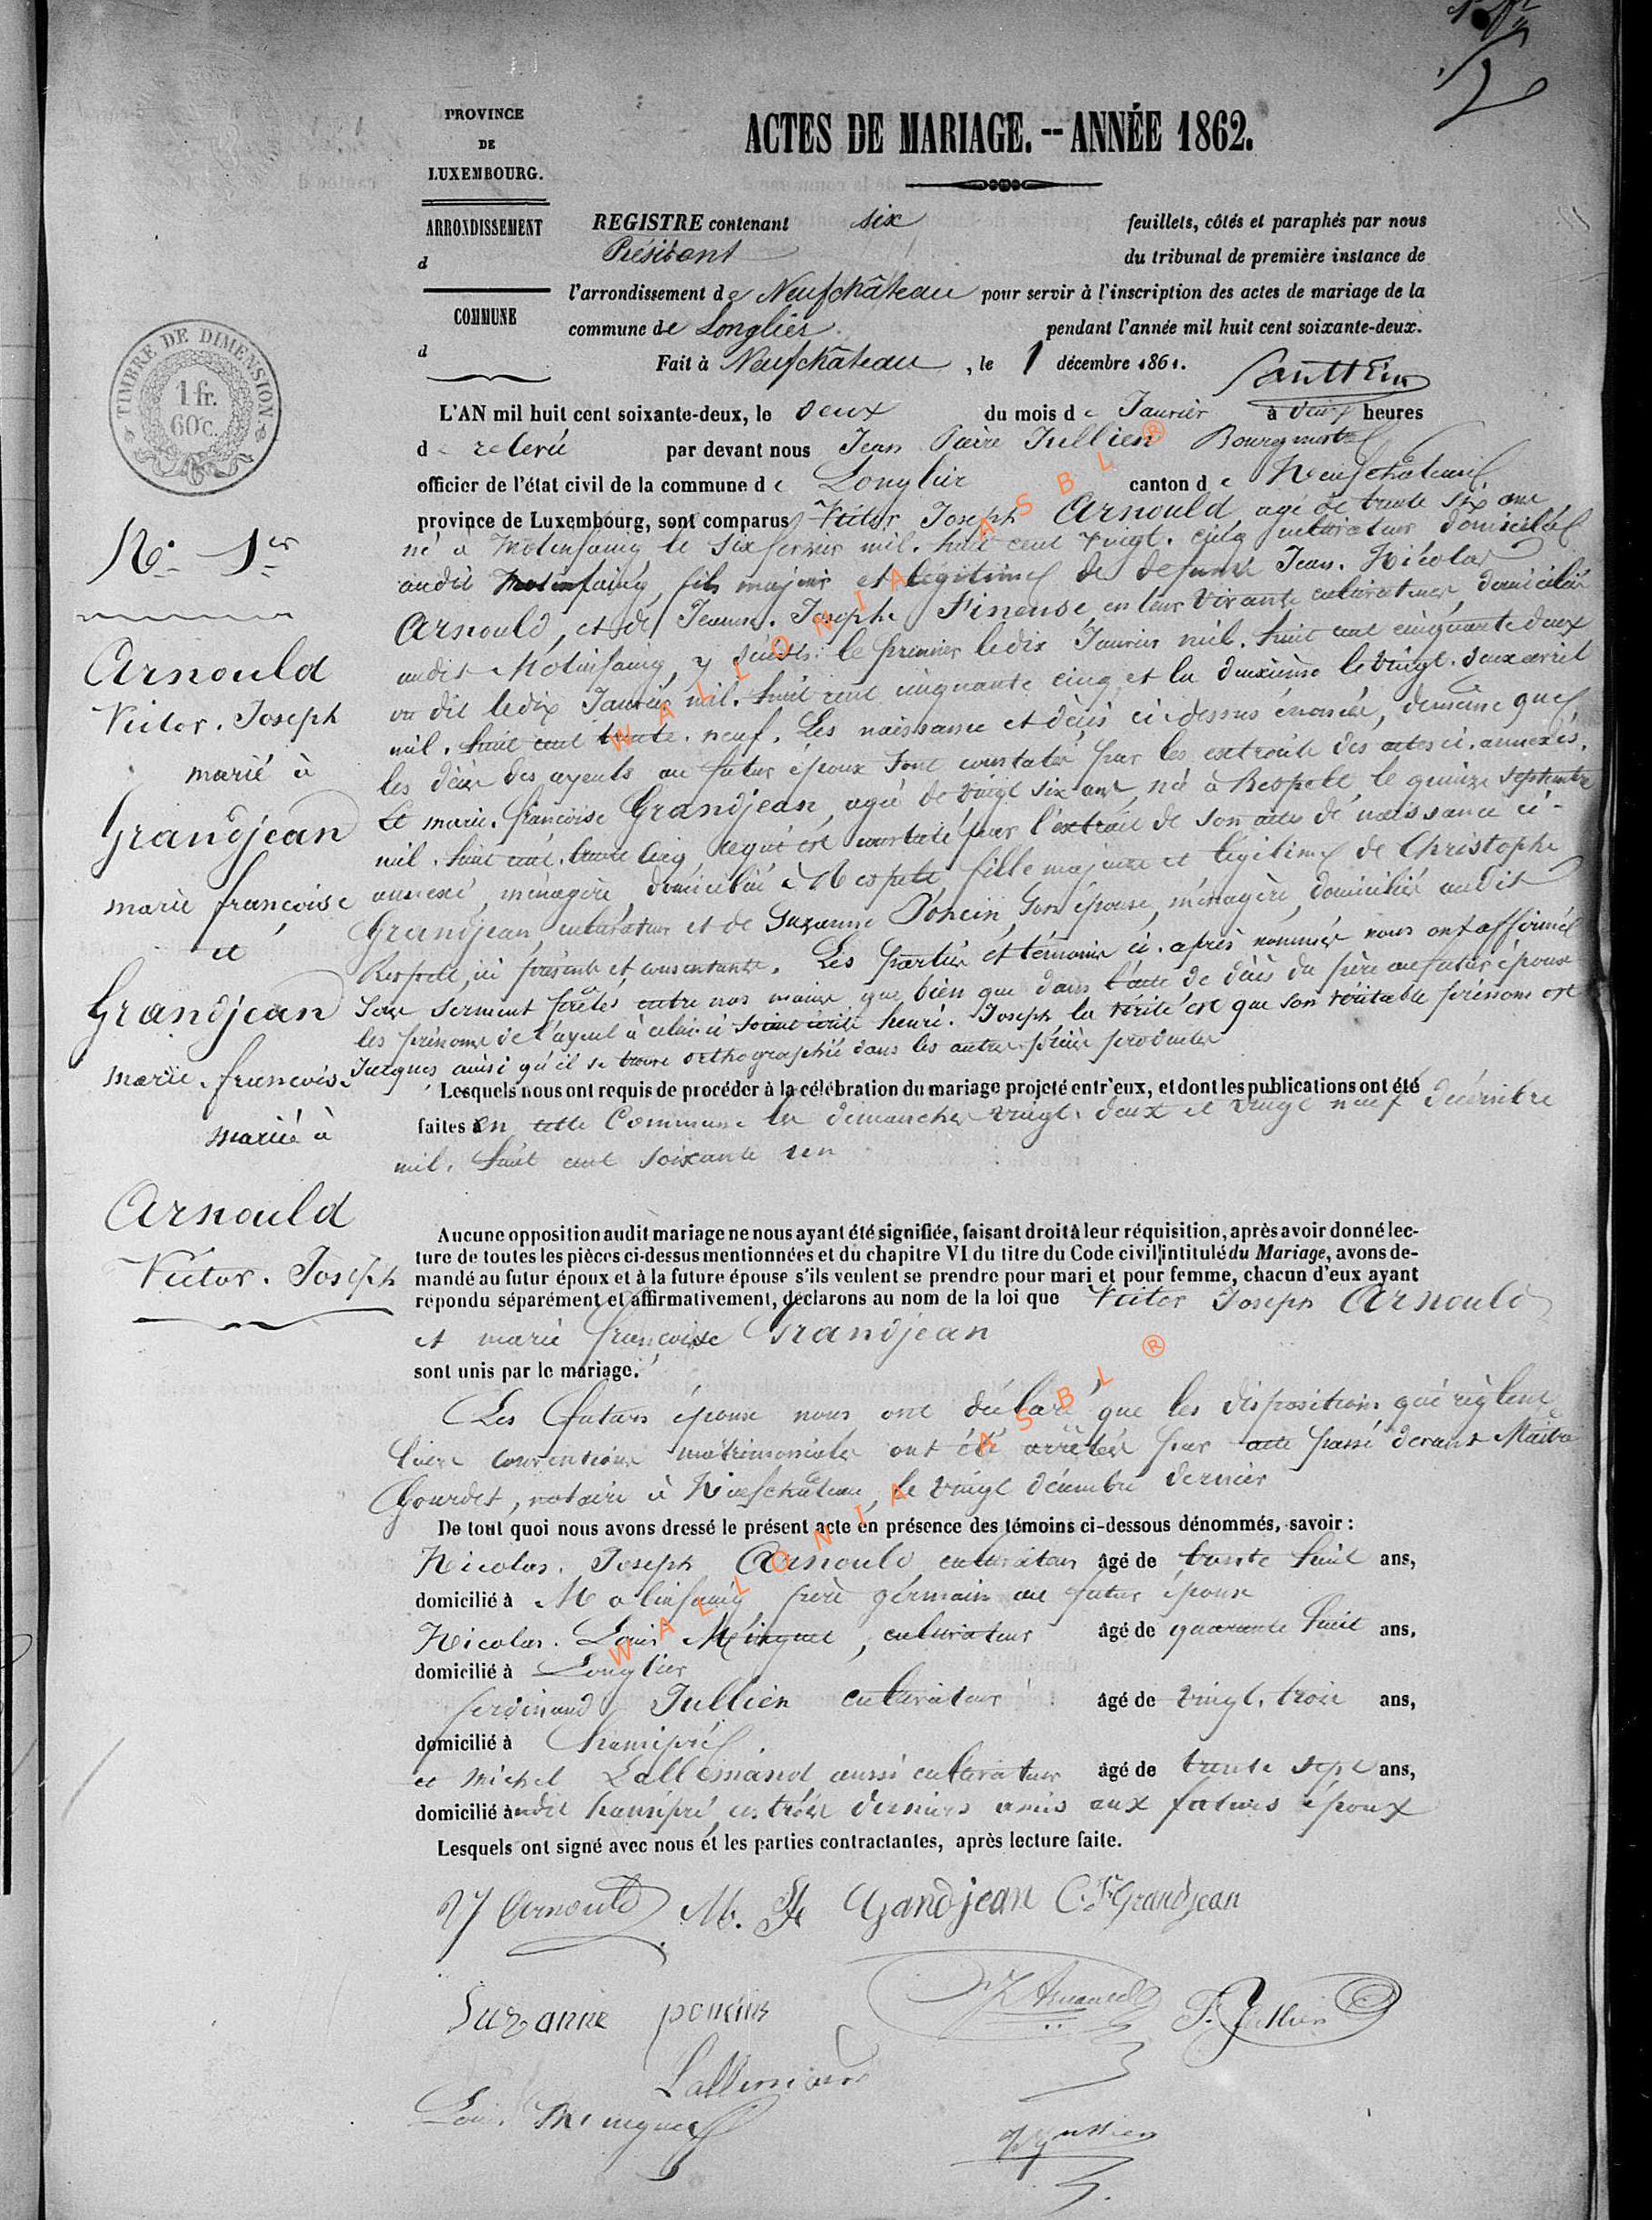 PROVINCE
DE
LUXEMBOURG.
ACTES DE MARIAGE. -- ANNÉE 1862.
ARRONDISSEMENT
d
COMMUNE
d
REGISTRE contenant six feuillets, côtés et paraphés par nous
Président du tribunal de première instance de
l'arrondissement de Neufchâteau pour servir à l'inscription des actes de mariage de la
commune de Longlier pendant l'année mil huit cent soixante-deux.
Fait à Neufchâteau, le 1 décembre 1861.
TIMBRE DE DIMENSION
1 fr.
60 c.
No. 1er
Arnould
Victor. Joseph
marié à
Grandjean
marie françoise
et
Grandjean
marie. françoise
mariée à
Arnould
Victor. Joseph
L'AN mil huit cent soixante-deux, le deux du mois de Janvier à deux heures
de relevée par devant nous Jean Pierre Jullien Bourgmestre
officier de l'état civil de la commune de Longlier canton de Neufchâteau
province de Luxembourg, sont comparus Victor Joseph Arnould agé de trente six ans
né à Molinfaing le six fevrier mil. huit cent vingt. cinq cultivateur domicilié
audit Molinfaing, fils majeur et légitime de defunt Jean. Nicolas
Arnould, et de Jeanne. Josephe Pineuse, en leur vivant cultivateurs, domiciliés
audit Molinfaing, y décédés. le premier le dix Janvier mil. huit cent cinquante deux
ou dit le dix Janvier mil. huit cent cinquante cinq et la deuxième le vingt. deux avril
mil. huit cent trente. neuf. Les naissance et décès ci-dessus énoncés, de même que
les décès des ayeuls au futur époux sont constatés par les extraits des actes ci. annexés.
Et marie. françoise Grandjean, agée de vingt six ans, née à Respelt, le quinze septembre
mil. huit cent. trente cinq, ce qui est constaté par l'extrait de son acte de naissance ci-
annexé, ménagère, domiciliée à Respelt, fille majeure et légitime de Christophe
Grandjean, cultivateur et de Suzanne Poncin, son épouse, ménagère, domiciliés audit
Respelt, ici présents et consentants. Les parties et témoins ci. après nommés nous ont affirmé
sous serment prêtés entre nos mains que bien que dans l'acte de décès du père au futur époux
les prénoms de l'ayeul à celui-ci soient écrits henri. Joseph la vérité est que son véritable prénom est
Jacques ainsi qu'il se trouve orthographié dans les autres pièces produites
Lesquels nous ont requis de procéder à la célébration du mariage projeté entr'eux, et dont les publications ont été
faites en cette Commune les dimanches vingt. deux et vingt neuf décembre
mil. huit cent soixante un
Aucune opposition audit mariage ne nous ayant été signifiée, faisant droit à leur réquisition, après avoir donné lec-
ture de toutes les pièces ci-dessus mentionnées et du chapitre VI du titre du Code civil, intitulé du Mariage, avons de-
mandé au futur époux et à la future épouse s'ils veulent se prendre pour mari et pour femme, chacun d'eux ayant
répondu séparément et affirmativement, déclarons au nom de la loi que Victor Joseph Arnould
et marie françoise Grandjean
sont unis par le mariage.
Les futurs époux nous ont déclaré que les dispositions qui règlent
leurs conventions matrimoniales ont été arrêtées par acte passé devant Maitre
Gourdet, notaire à Neufchâteau, le vingt décembre dernier
De tout quoi nous avons dressé le présent acte en présence des témoins ci-dessous dénommés, savoir :
Nicolas. Joseph Arnould cultivateur âgé de trente huit ans,
domicilié à Molinfaing frère germain au futur époux
Nicolas. Louis Minguet, cultivateur âgé de quarante huit ans,
domicilié à Longlier
ferdinand Jullien cultivateur âgé de vingt. trois ans,
domicilié à hamipré
et michel Lallemand aussi cultivateur âgé de trente sept ans,
domicilié audit hamipré, ces trois derniers amis aux futurs époux
Lesquels ont signé avec nous et les parties contractantes, après lecture faite.
VJ Arnould M. F Gandjean C. Grandjean
Suzanne poncins Arnould F. Jullien
Lallemand
Louis Minguet
Jullien
WALLONIA ASBL ®
WALLONIA ASBL ®